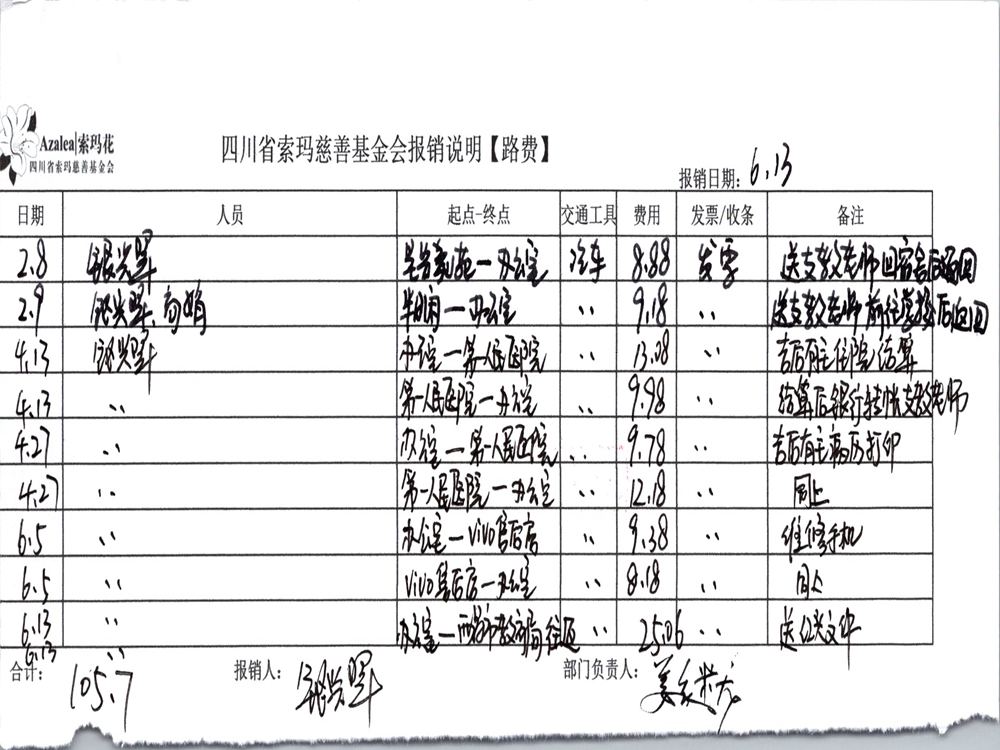 Azalea|索玛花
四川省索玛慈善基金会
四川省索玛慈善基金会报销说明【路费】
报销日期：6.13
日期 人员 起点-终点 交通工具 费用 发票/收条 备注
2.8 一办公室 汽车 8.88 发票 送支教老师回宿舍后返回
2.9 一办公室 〃 9.18 〃 送支教老师前往学校后返回
4.13 办公室一第一人民医院 〃 13.08 〃 吉后有主住院结算
4.13 〃 第一人民医院一办公室 〃 9.98 〃 结算后银行转账支教老师
4.27 〃 办公室一第一人民医院 〃 9.78 〃 吉后有主病历打印
4.27 〃 第一人民医院一办公室 〃 12.18 〃 同上
6.5 〃 办公室一vivo售后店 〃 9.38 〃 维修手机
6.5 〃 vivo售后店一办公室 〃 8.18 〃 同上
6.13 〃 办公室一西昌市教育局往返 〃 25.06 〃 送公益文件
6.13 〃
合计： 105.7 报销人： 部门负责人：